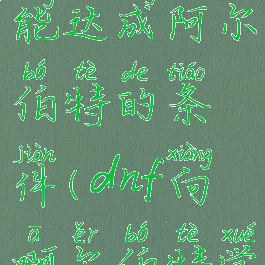 能达成阿尔
bó tè de tiáo
伯特的条
jiàn xiàng
件(dnf向
ā ěr bó tè xué
阿尔伯特学